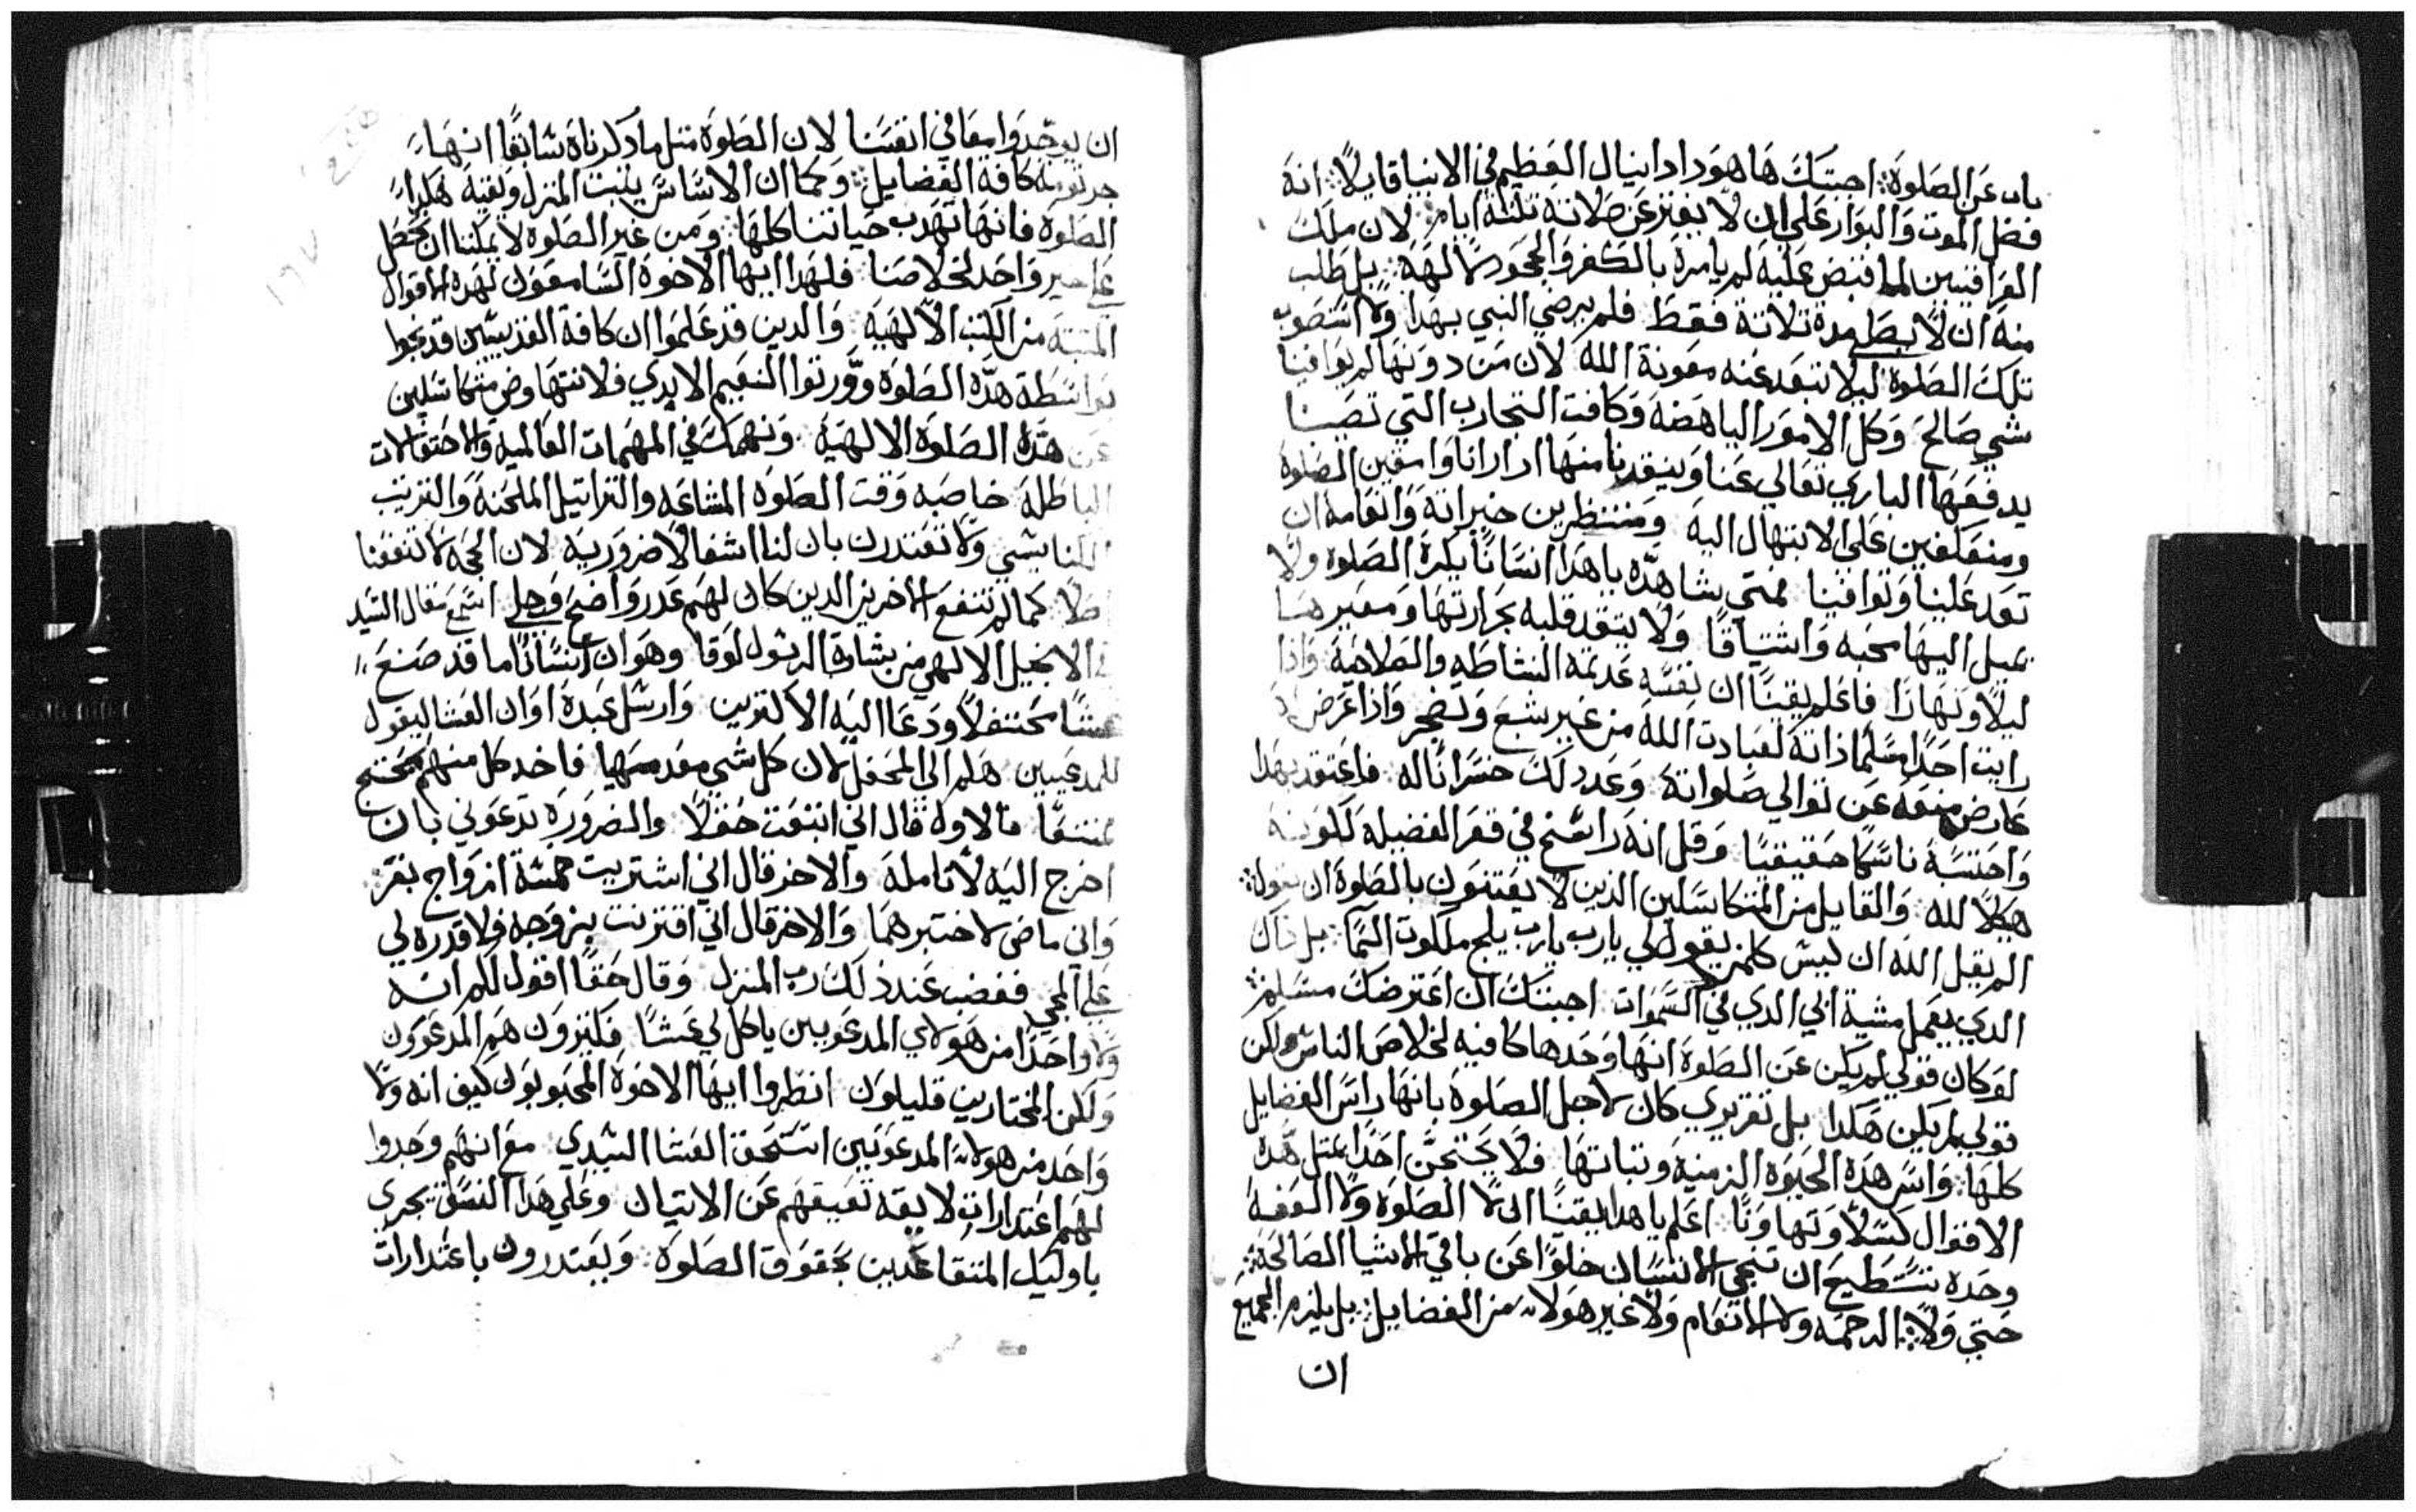 بان عن الصلوة: اجبتك ها هودا دانيال العظيم في الانبيا قايلاً: انه
فضل الموت والبوار علي ان لا يفتر عن صلاته تلتة ايام: لان ملك
الفرا فتيين لما قبض عليه لم يامره بالكفر والجحود لالهه: بل طلب
منه ان لا يصلي مدة تلاتة فقط فلم يرضي النبي بهدا ولا استصوب
تلك الصلوة ليلا تبعد عنه معونة الله لان من دونها لم يوافينا
شي صالح وكل الامور الباهضه وكافت التجارب التي تصبنا
يدفعها الباري تعالي عنا وينقدنا منها ادا رانا وامقين الصلوة
ومنعكفين علي الابتهال اليه ومنتظرين خيراته وانعامه ان
تود علينا وتوافينا فمتي شاهده يا هدا انسانا يكره الصلوة ولا
يميل اليها محبه واشتياقا ولا يتقد قلبه بحرارتها ومعبرها
ليلاً ونهارا فاعلم يقيناً ان نفسه عديمة النشاطه والصلاحية وادا
رايت احداً مسلما ذاته لعبادت الله من غير شبع وضجر وادا عرض له
عارض منعه عن توالي صلواته وعد دلك خسرانًا له فاعتقد بهدا
واحتسبه ناسكا حقيقيًا وقل انه راسخ في قعر الفضيله لكونه
هيكلا لله والقايل من المتكاسلين الذين لا يعتنون بالصلوة ان يقول:
الم يقل الله ان ليس كلمن يقول لي يارب يارب يلج ملكوت السما: بل ذاك
الدي يعمل مشية ابي الدي في السموات اجبتك ان اعترضك مسلم:
لو كان قولي لم يكن عن الصلوة انها وحدها كافيه لخلاص الناس ولكن
قولي لم يكن هكدا بل تقريري كان لاجل الصلوة بانها راس الفضايل
كلها: واس هده الحيوة الزمنيه وتباتها فلا يحتجن احدا بمتل هده
الاقوال كسلا وتهاونًا: اعلم يا هدا يقيناً ان لا الصلوة ولا العفه
وحده تستطيع ان تنجي الانسان خلوًا عن باقي الاشيا الصالحة:
حتي ولا الرحمه ولا الانعام ولا غير هولاء من الفضايل: بل يلزم الجميع
ان
ان يوجدوا معا في انفسنا لان الصلوة متل ما دكرناه سابقًا انها
جرتومة كافة الفضايل: وكما ان الاساس يتبت المنزل ويقيه هكدا
الصلوة فانها تهدب حياتنا كلها: ومن غير الصلوة لا يمكننا ان نحصل
علي خير واحد لخلاصنا فلهدا ايها الاخوة السامعون لهده الاقوال
المتبته من الكتب الالهيه والدين قد علموا ان كافة القديسين قد نجوا
بواسطة هده الصلوة وورتوا النعيم الابدي فلا نتهاون متكاسلين
عن هده الصلوه الالهيه ونهمك في المهمات العالميه والاحتفالات
الباطله خاصه وقت الصلوه المشاعه والتراتيل الملحنة والترتيب
الكنايسي ولا تعتدرن بان لنا اشغالا ضروريه لان الحجه لا تنفعنا
اصلا كما لم تنفع الاخرين الدين كان لهم عدر واضح وجلي اسمع مقال السيد
في الانجيل الالهي من بشارة الرسول لوقا وهو ان انسانًا ما قد صنع
عشًا محتفلاً ودعا اليه الاكترين وارسل عبده اوان العشا ليقول
للمدعيين هلم الي المحفل لان كل شي معد مهيا فاخد كل منهم محتج
ممتنعًا فالاول قال اني ابتعت حقلاً والضروره تدعوني بان
اخرج اليه لاتامله والاخر قال اني اشتريت خمسة ازواج بقر:
واني ماض لاختبرهما والاخر قال اني اقترنت بزوجه فلا قدره لي
علي المجي فغضب عند ذلك رب المنزل وقال حقًا اقول لكم انه
ولا واحدا من هولاي المدعوين ياكل لي عشًا فكتيرون هم المدعوون
ولكن المختارين قليلون انظروا ايها الاخوة المحبوبون كيف انه ولا
واحد من هولاء المدعوين استحق العشا السيدي مع انهم وجدوا
لهم اعتدارات لايقه تعيقهم عن الاتيان وعلي هدا النسق يجري
باوليك المتقاعدين بحقوق الصلوة: ويعتدرون باعتدارات